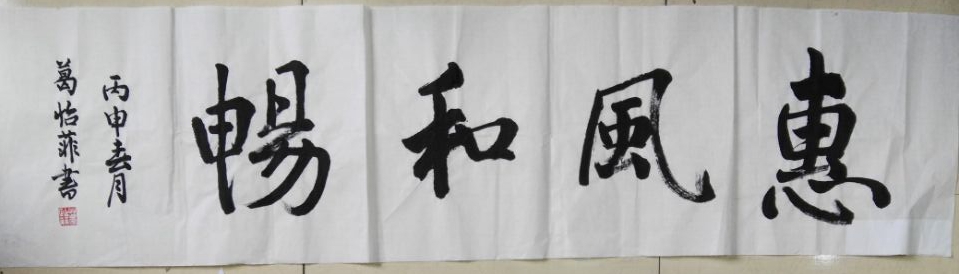 惠風和暢
丙申春月
葛怡菲書